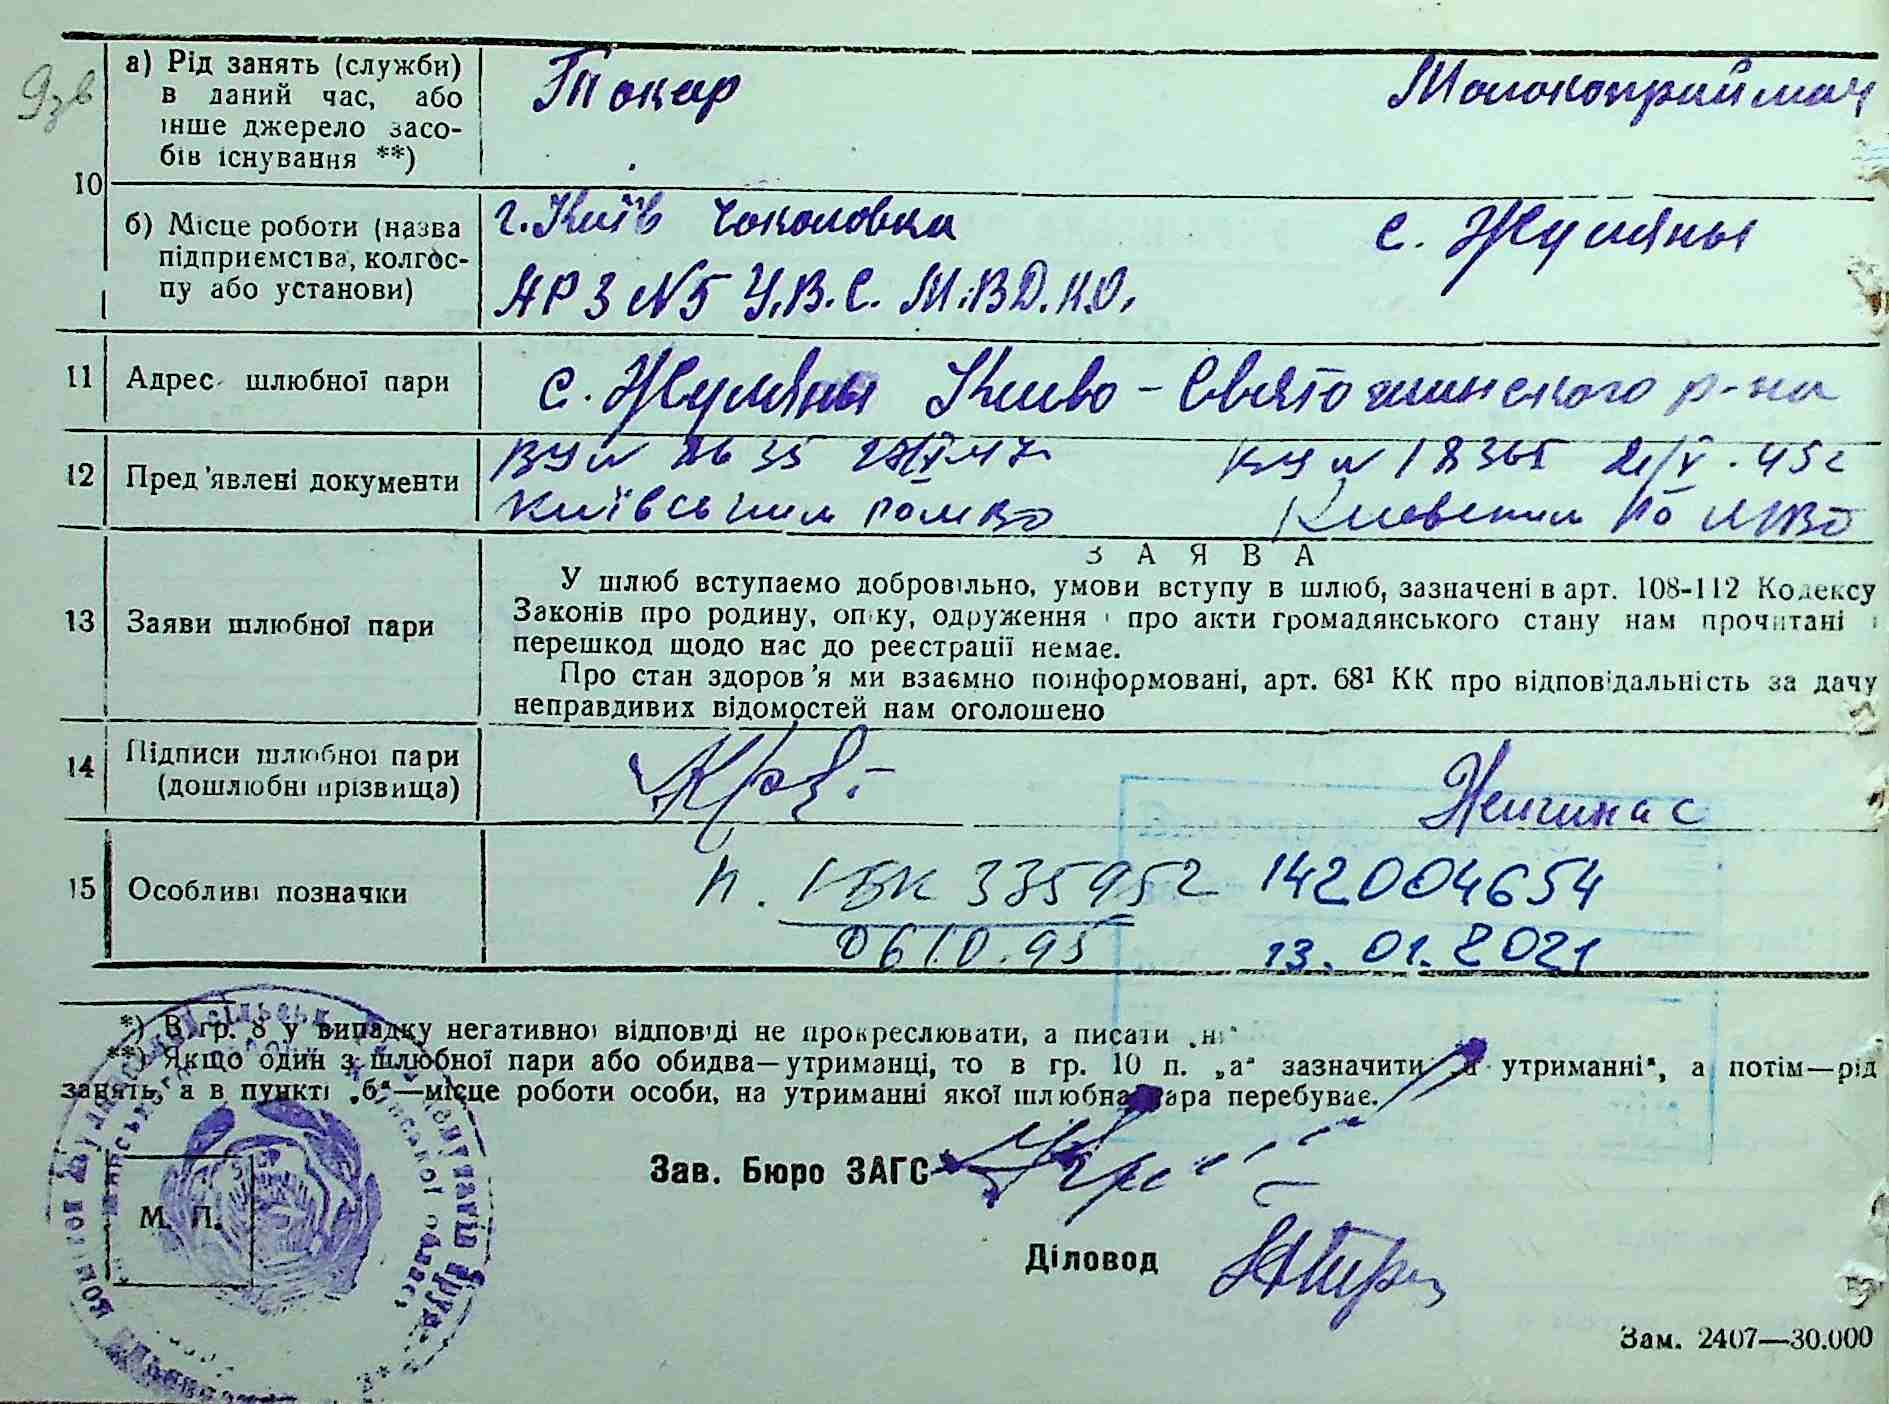 10
а) Рід занять (служби)
в даний час, або
інше джерело засо-
бів існування **)
Токар
Молокоприймач
б) Місце роботи (назва
підприємства, колгос-
пу або установи)
г. Київ Чоколовка
АРЗ №5 У.В.С. М.ВД.К.О.
с. Жуляны
11 Адрес шлюбної пари
с. Жуляны Киево-Святошинского р-на
12 Пред'явлені документи
Київським РОМВД
Киевским РО МВД
13 Заяви шлюбної пари
ЗАЯВА
У шлюб вступаємо добровільно, умови вступу в шлюб, зазначені в арт. 108-112 Кодексу
Законів про родину, опіку, одруження і про акти громадянського стану нам прочитані і
перешкод щодо нас до реєстрації немає.
Про стан здоров'я ми взаємно поінформовані, арт. 68¹ КК про відповідальність за дачу
неправдивих відомостей нам оголошено
14 Підписи шлюбної пари
(дошлюбні прізвища)
15 Особливі позначки
п. І-БК 335952 142004654
06.10.95 13.01.2021
*) В гр. 8 у випадку негативної відповіді не прокреслювати, а писати „ні“
**) Якщо один з шлюбної пари або обидва—утриманці, то в гр. 10 п. „а“ зазначити „на утриманні“, а потім—рід
занять, а в пункті „б“—місце роботи особи, на утриманні якої шлюбна пара перебуває.
Зав. Бюро ЗАГС
М. П.
Діловод
Зам. 2407—30.000